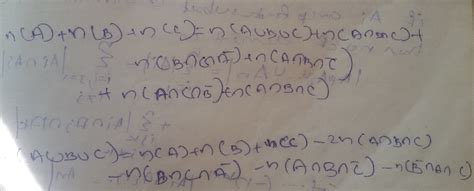 n(A)+n(B)+n(C)=n(A∪B∪C)+n(A∩B∩C)+
n(B∩C∩Ā)+n(A∩B∩C̄)
+n(A∩C∩B̄)+n(A∩B∩C)
(A∪B∪C)=n(A)+n(B)+n(C)-2n(A∩B∩C)
-n(B∩C∩Ā)-n(A∩B∩C̄)-n(B̄∩A∩C)